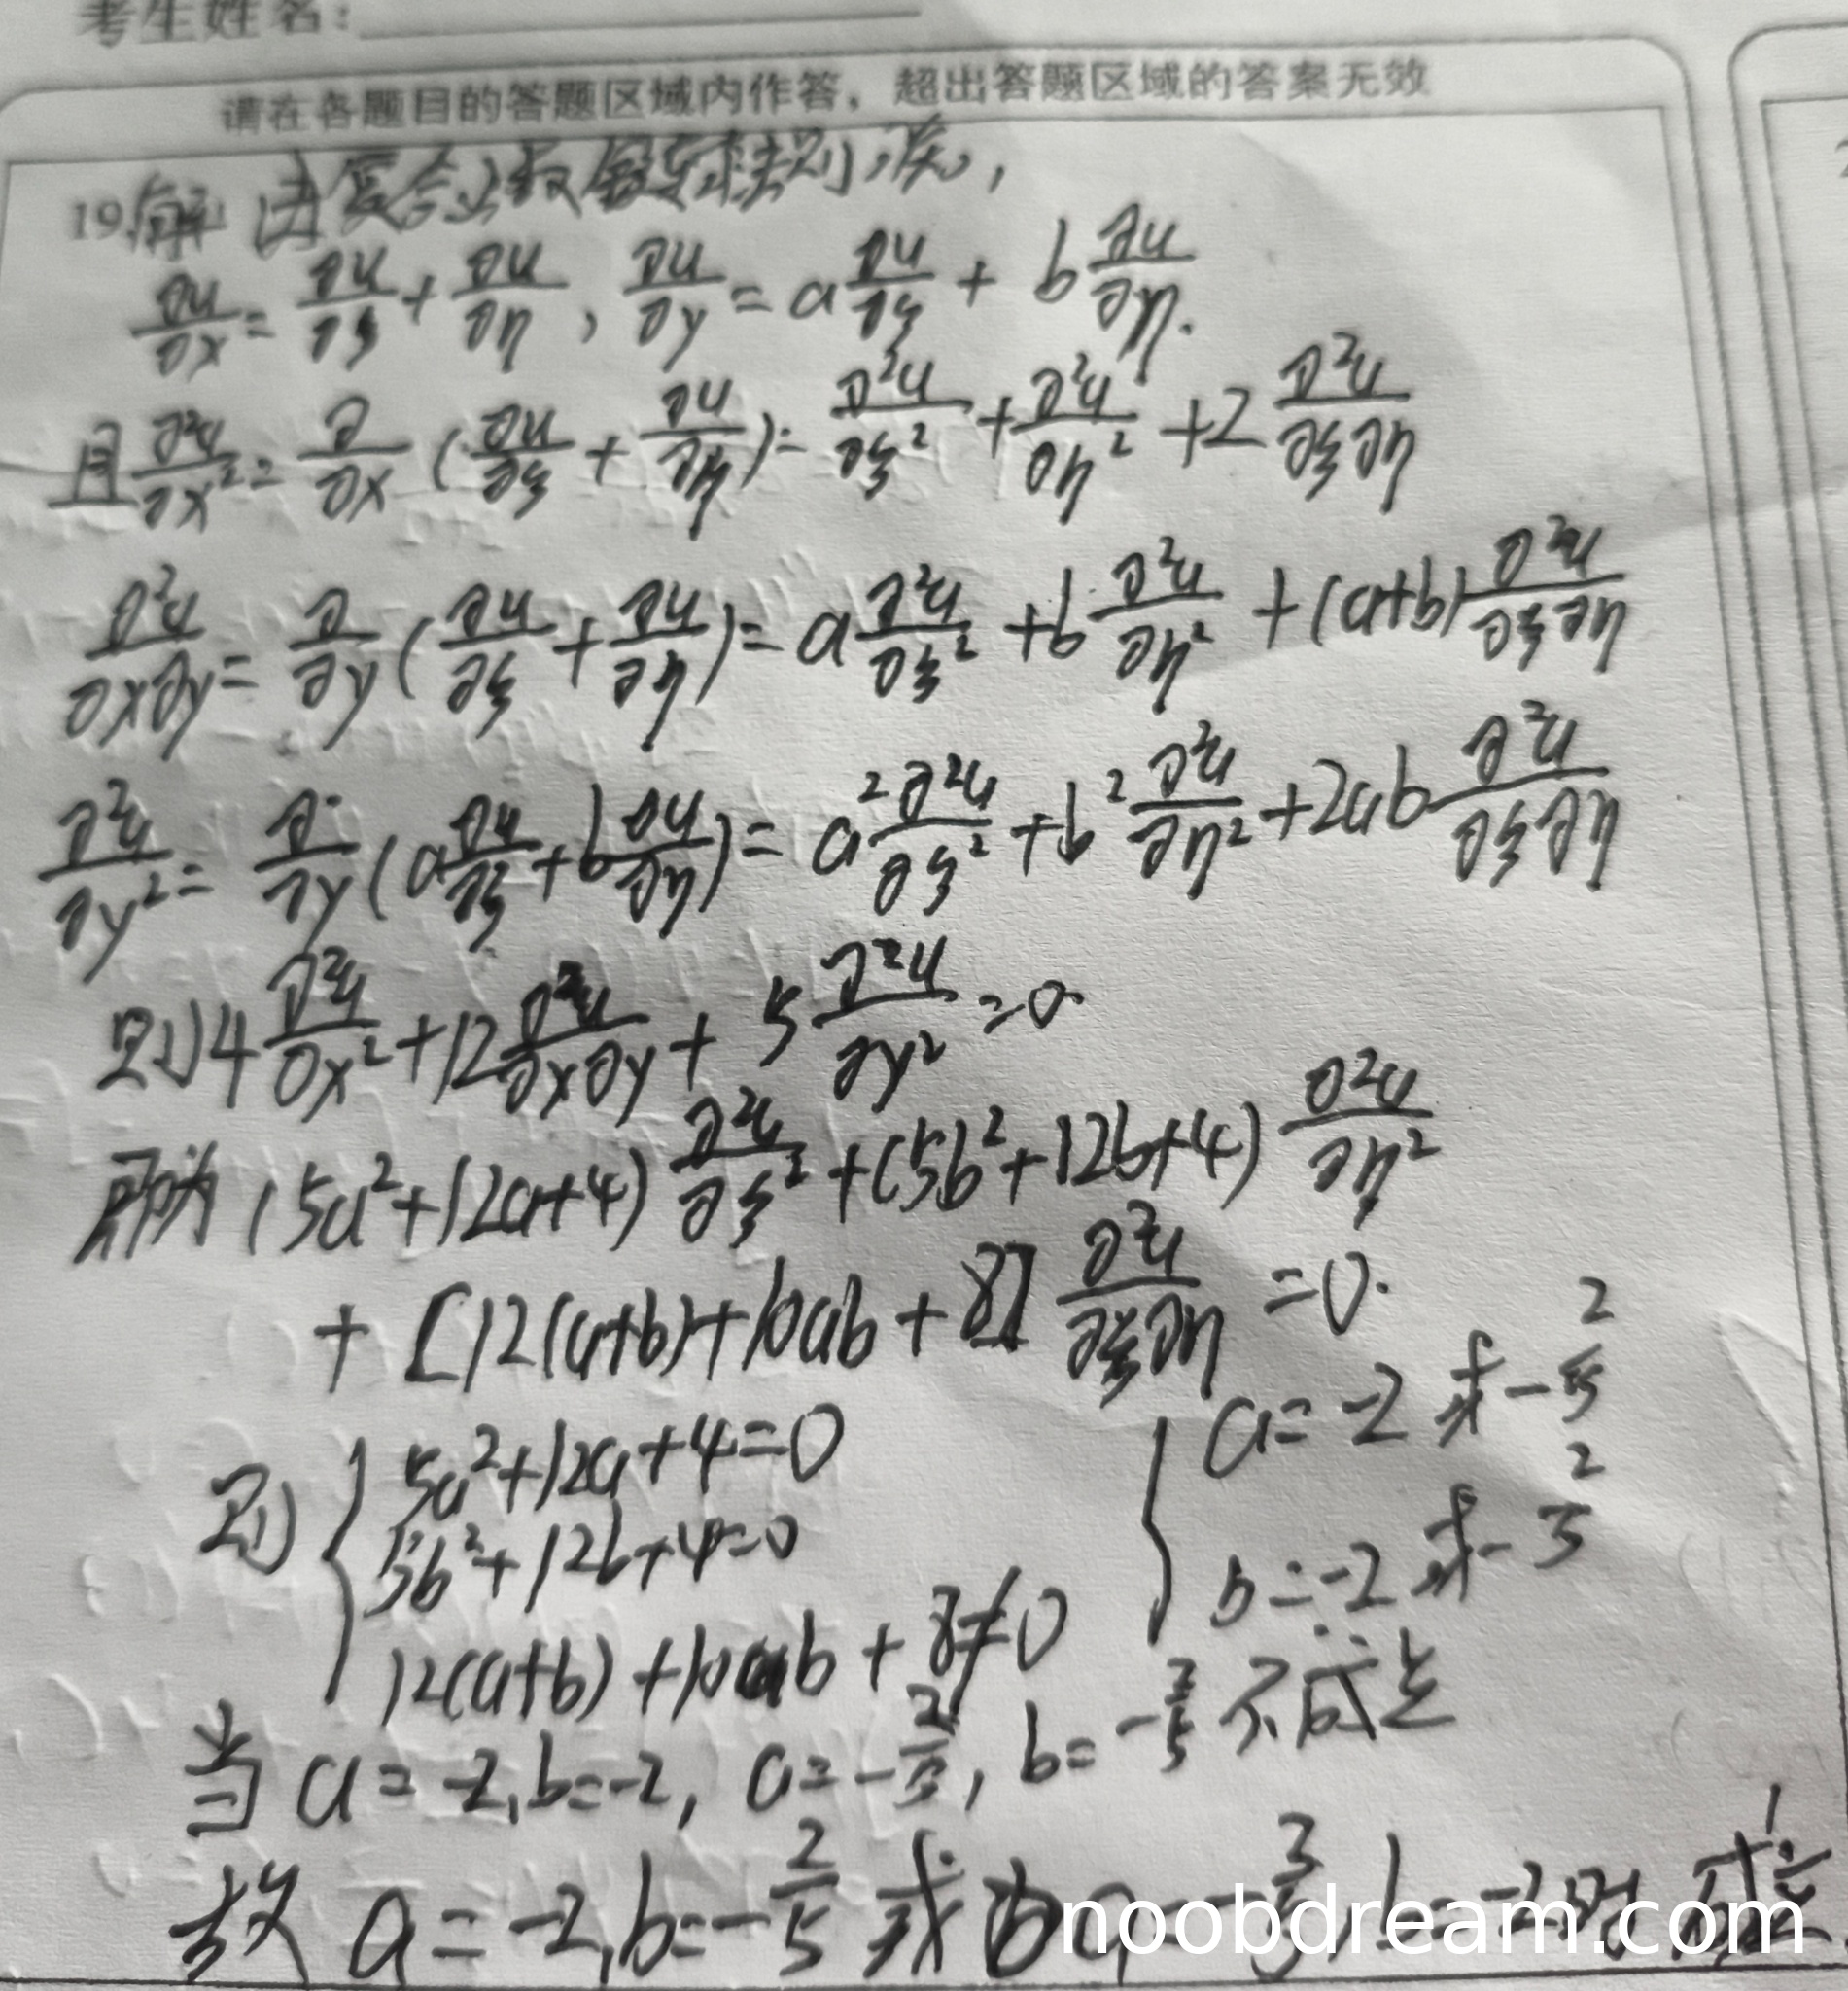 考生姓名:
请在各题目的答题区域内作答，超出答题区域的答案无效
19.解 由复合函数链式求导法则,
∂u/∂x = ∂u/∂ξ + ∂u/∂η , ∂u/∂y = a ∂u/∂ξ + b ∂u/∂η.
且 ∂²u/∂x² = ∂/∂x (∂u/∂ξ + ∂u/∂η) = ∂²u/∂ξ² + ∂²u/∂η² + 2 ∂²u/∂ξ∂η
∂²u/∂x∂y = ∂/∂y (∂u/∂ξ + ∂u/∂η) = a ∂²u/∂ξ² + b ∂²u/∂η² + (a+b) ∂²u/∂ξ∂η
∂²u/∂y² = ∂/∂y (a ∂u/∂ξ + b ∂u/∂η) = a² ∂²u/∂ξ² + b² ∂²u/∂η² + 2ab ∂²u/∂ξ∂η
则 4 ∂²u/∂x² + 12 ∂²u/∂x∂y + 5 ∂²u/∂y² = 0
即为 (5a²+12a+4) ∂²u/∂ξ² + (5b²+12b+4) ∂²u/∂η²
+ [12(a+b)+10ab+8] ∂²u/∂ξ∂η = 0.
则 { 5a²+12a+4=0
5b²+12b+4=0
12(a+b)+10ab+8≠0
{ a=-2 或 -2/5
b=-2 或 -2/5
当 a=-2, b=-2, a=-2/5, b=-2/5 不成立
故 a=-2, b=-2/5 或 b=-2时 成立
noobdream.com